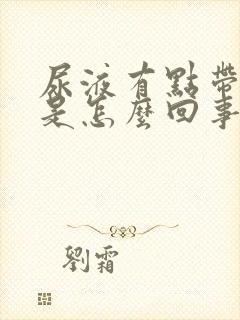 尿液有點帶
是怎麼回事
劉霜